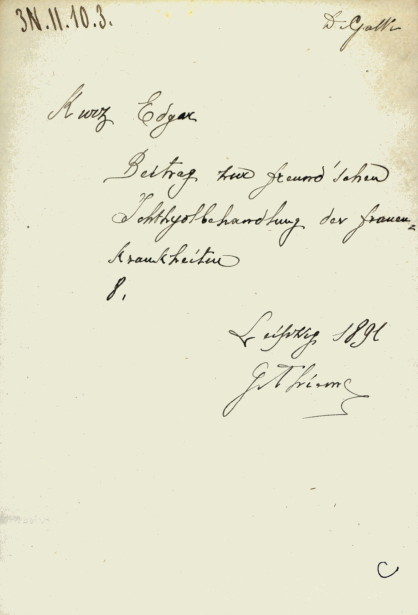 3N.11.10.3.
Dr Galli
Kurz Edgar
Beitrag zur freund'schen
Ichthyolbehandlung der frauen=
krankheiten
8.
Leipzig 1891
G. Thieme
C